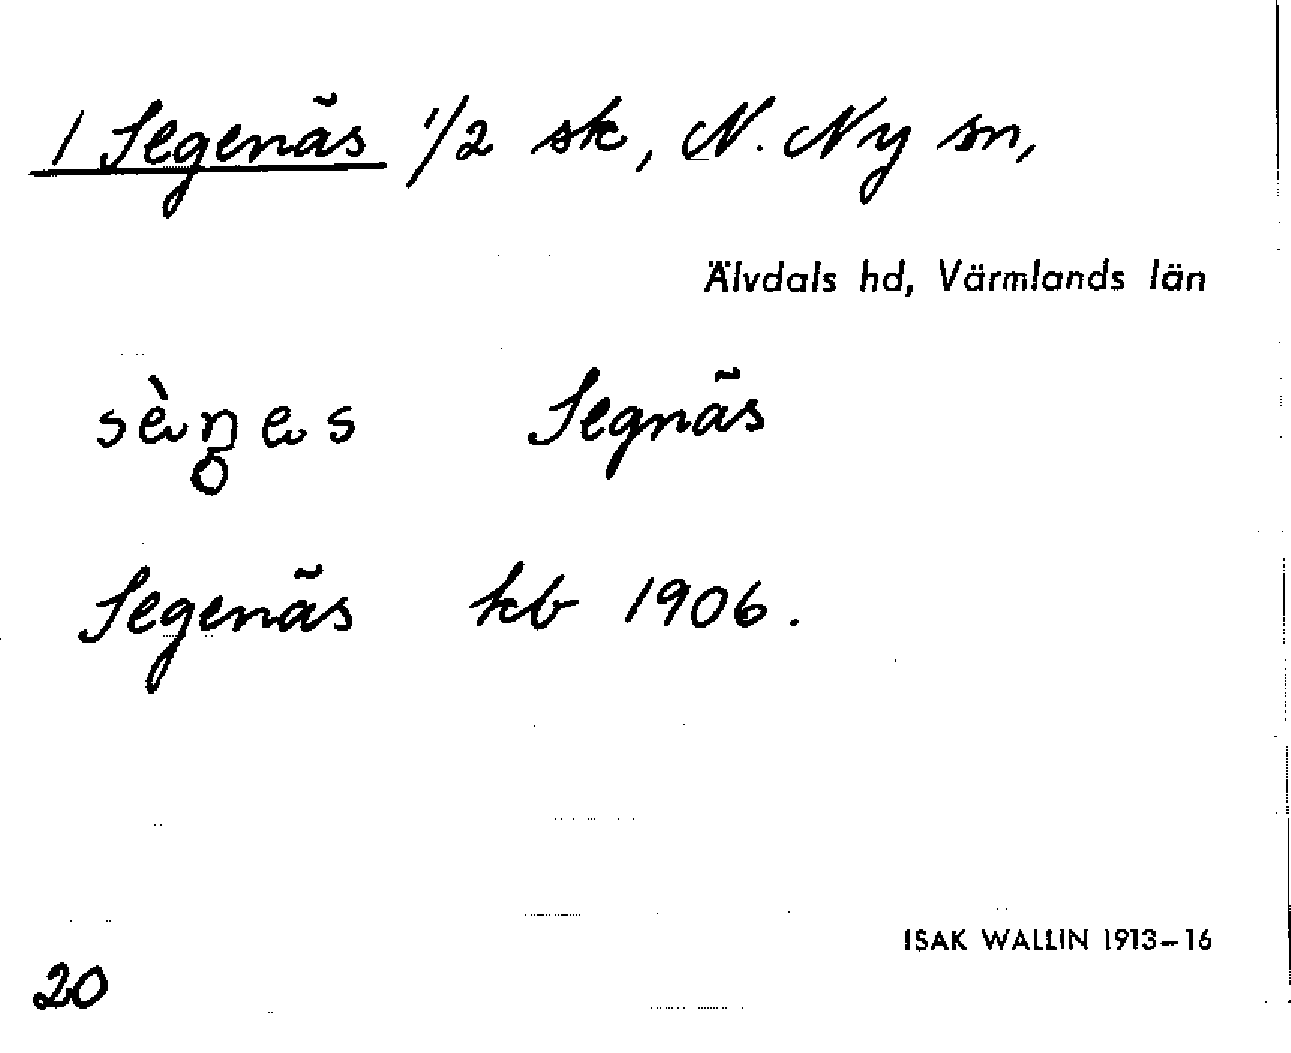 1 Segenäs 1/2 sk, N. Ny sn,
Älvdals hd, Värmlands län
Segnäs
Segenäs kb 1906.
ISAK WALLIN 1913-16
20